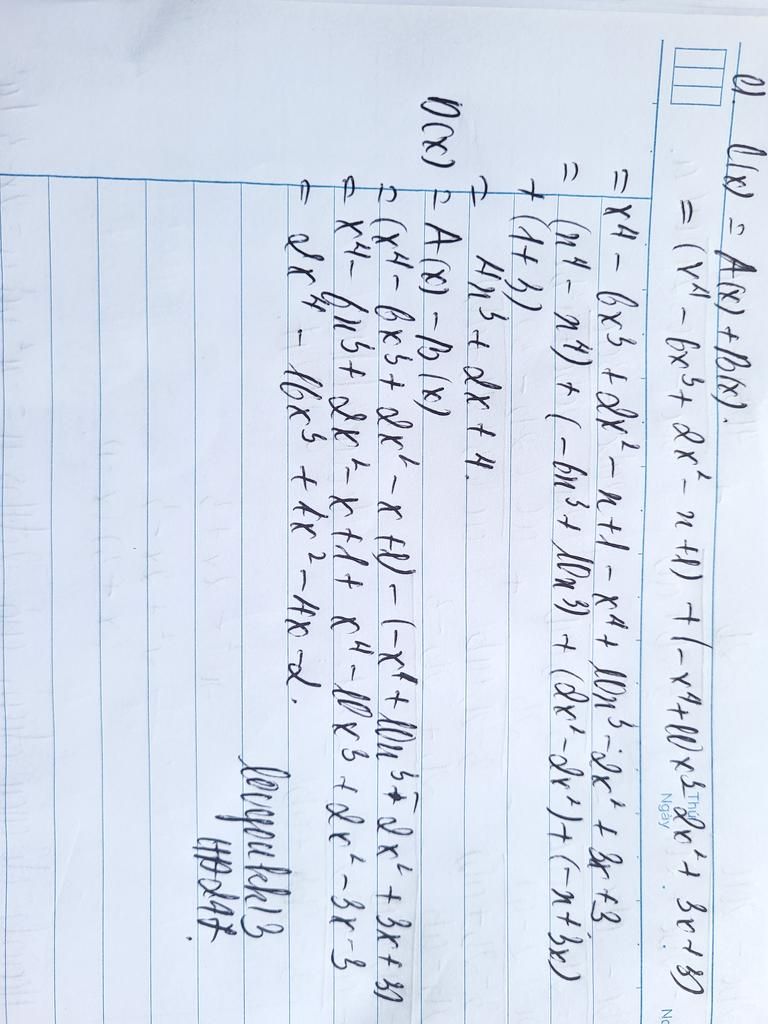 c). C(x) = A(x) + B(x).
= (x⁴ - 6x³ + 2x² - x + 1) + (-x⁴ + 10x³ - 2x² + 3x + 3)
= x⁴ - 6x³ + 2x² - x + 1 - x⁴ + 10x³ - 2x² + 3x + 3
= (x⁴ - x⁴) + (-6x³ + 10x³) + (2x² - 2x²) + (-x + 3x)
+ (1 + 3)
= 4x³ + 2x + 4.
D(x) = A(x) - B(x)
= (x⁴ - 6x³ + 2x² - x + 1) - (-x⁴ + 10x³ - 2x² + 3x + 3)
= x⁴ - 6x³ + 2x² - x + 1 + x⁴ - 10x³ + 2x² - 3x - 3
= 2x⁴ - 16x³ + 4x² - 4x - 2.
Thứ
Ngày